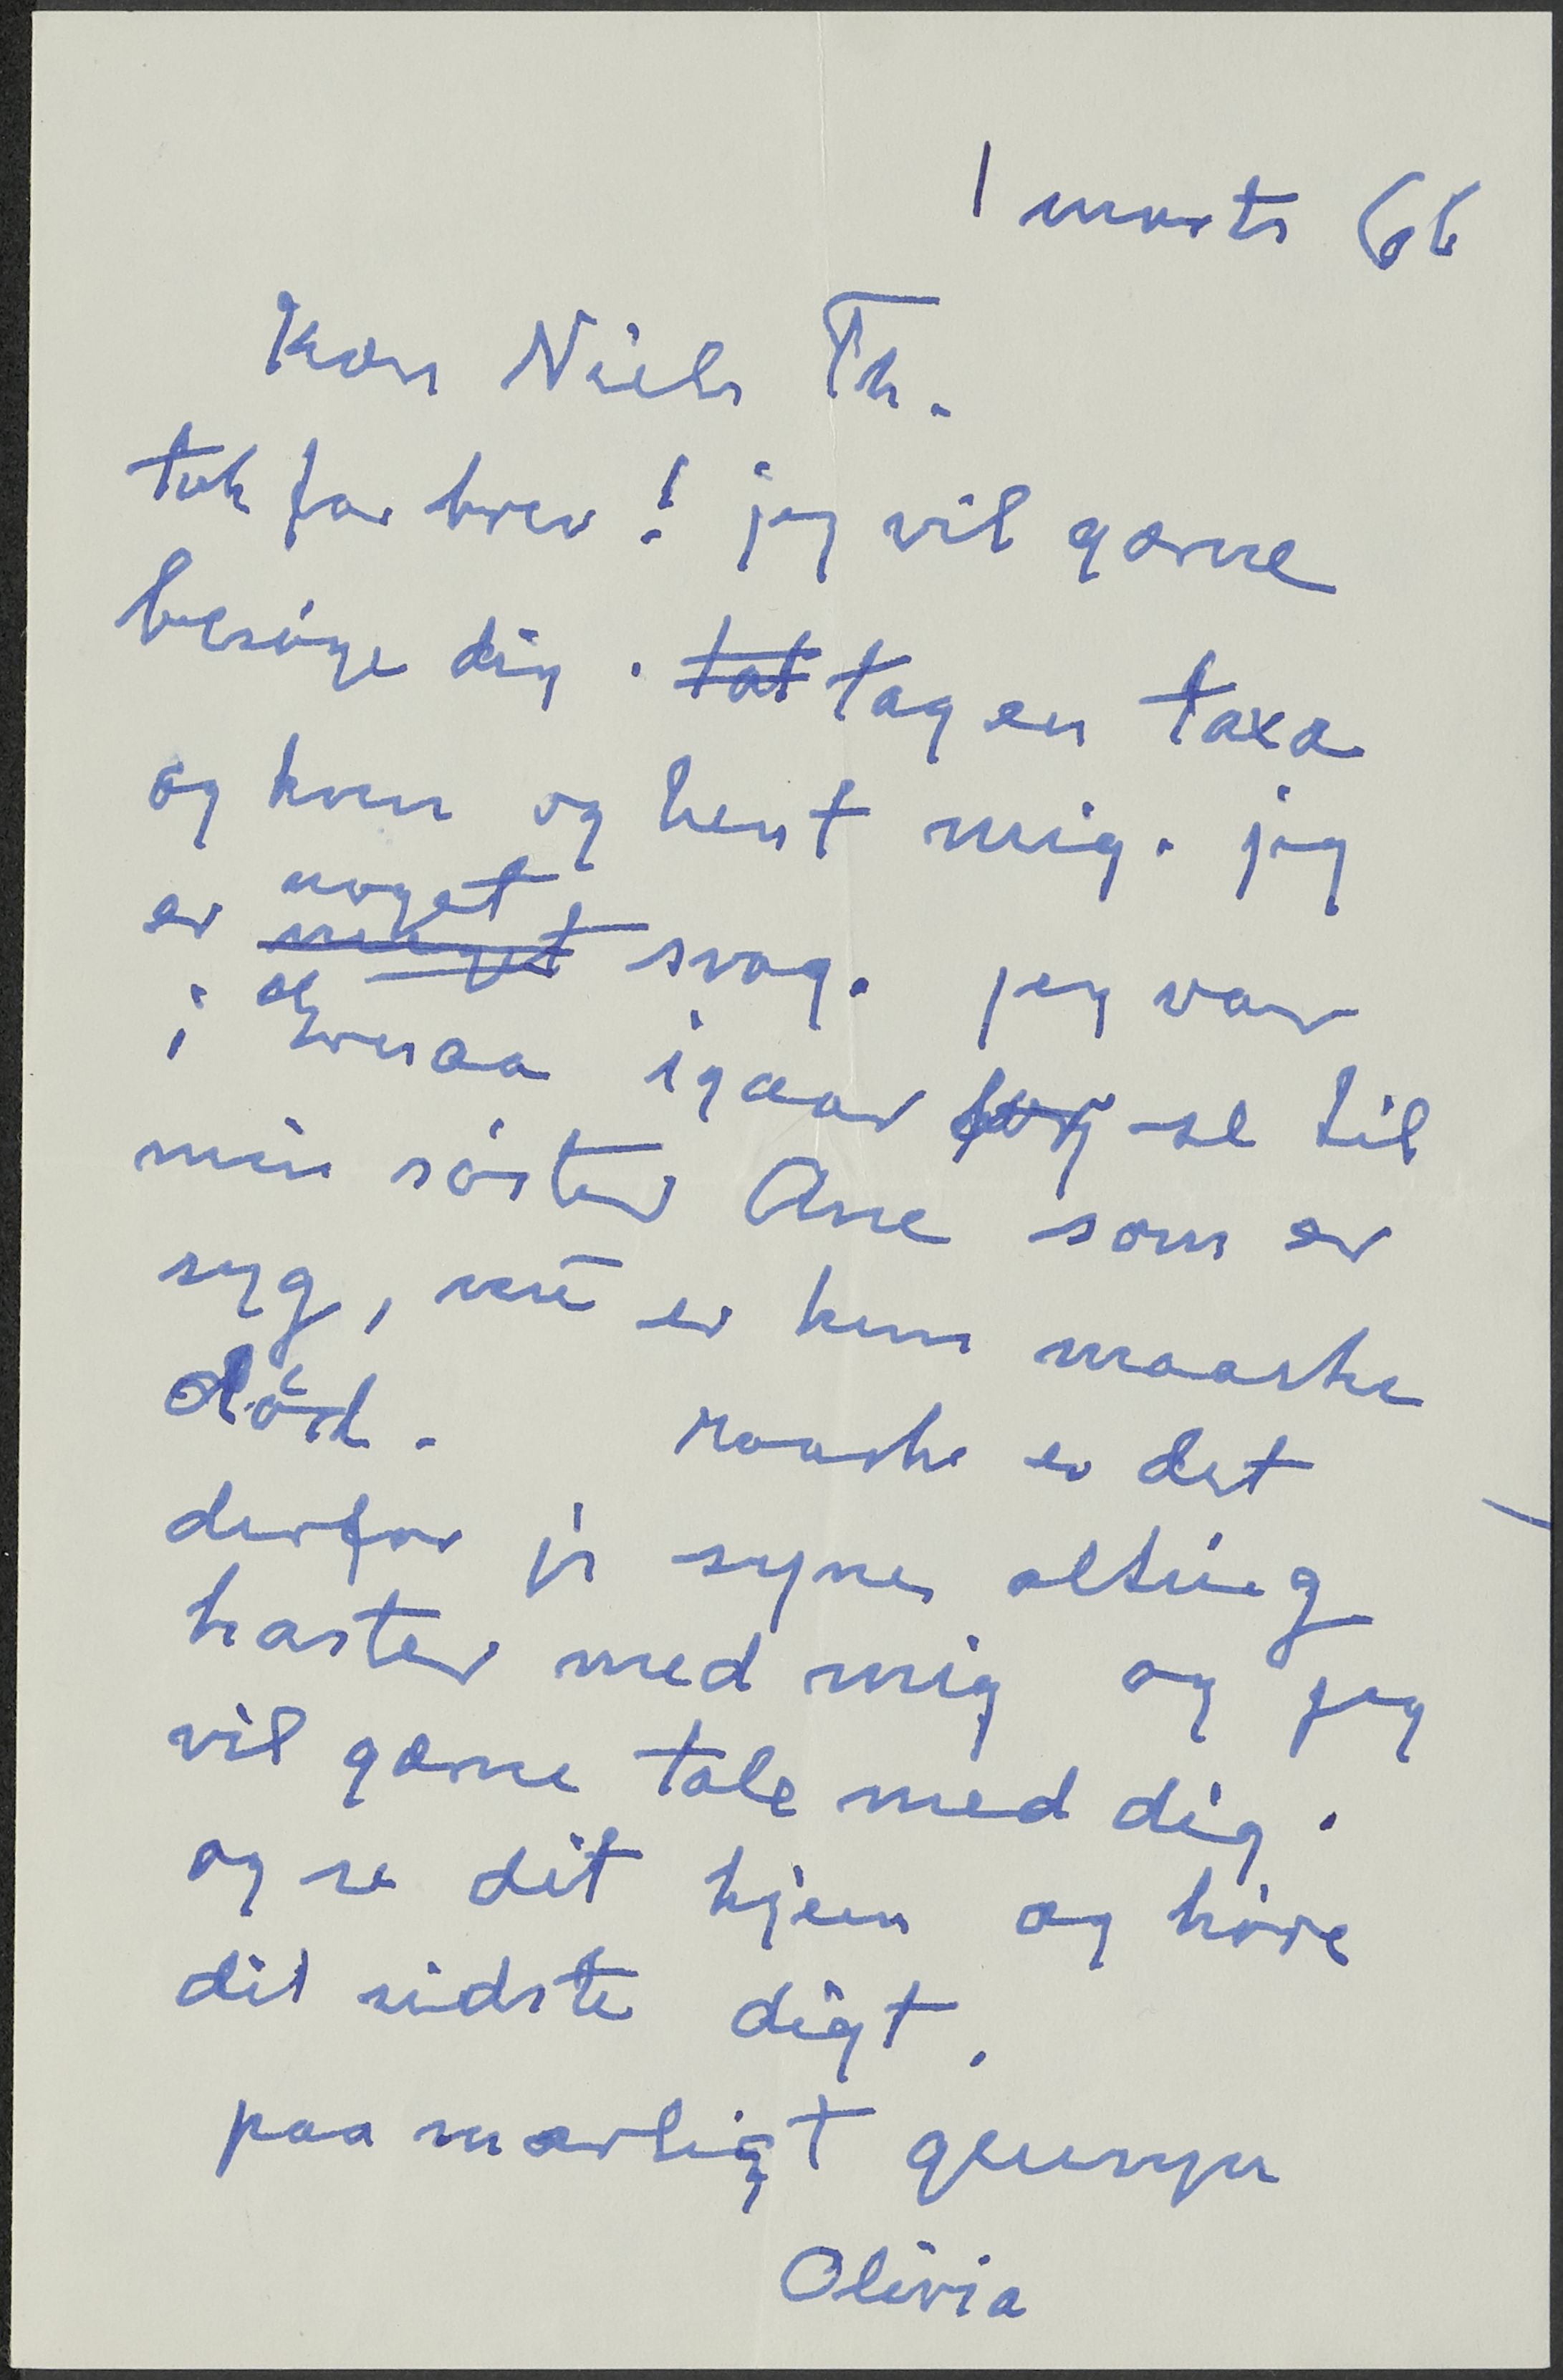 1 marts 66
Kære Niels Th.
tak for brev! jeg vil gærne
besöge dig. tat tag en taxa
og kom og hent mig. jeg
noget
er meget svag. jeg var
i Grenaa igaar for se til
at
min söster Ane som er
syg, nu er hun maaske
död. maaske er det
derfor jeg synes alting
haster med mig og jeg
vil gærne tale med dig.
og se dit hjem og höre
dit sidste digt.
paa snarligt gensyn
Olivia